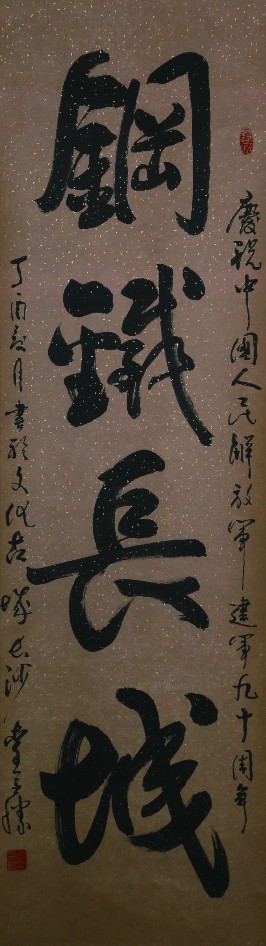 慶祝中國人民解放軍建軍九十周年
鋼鐵長城
丁酉夏月書於文化古城長沙